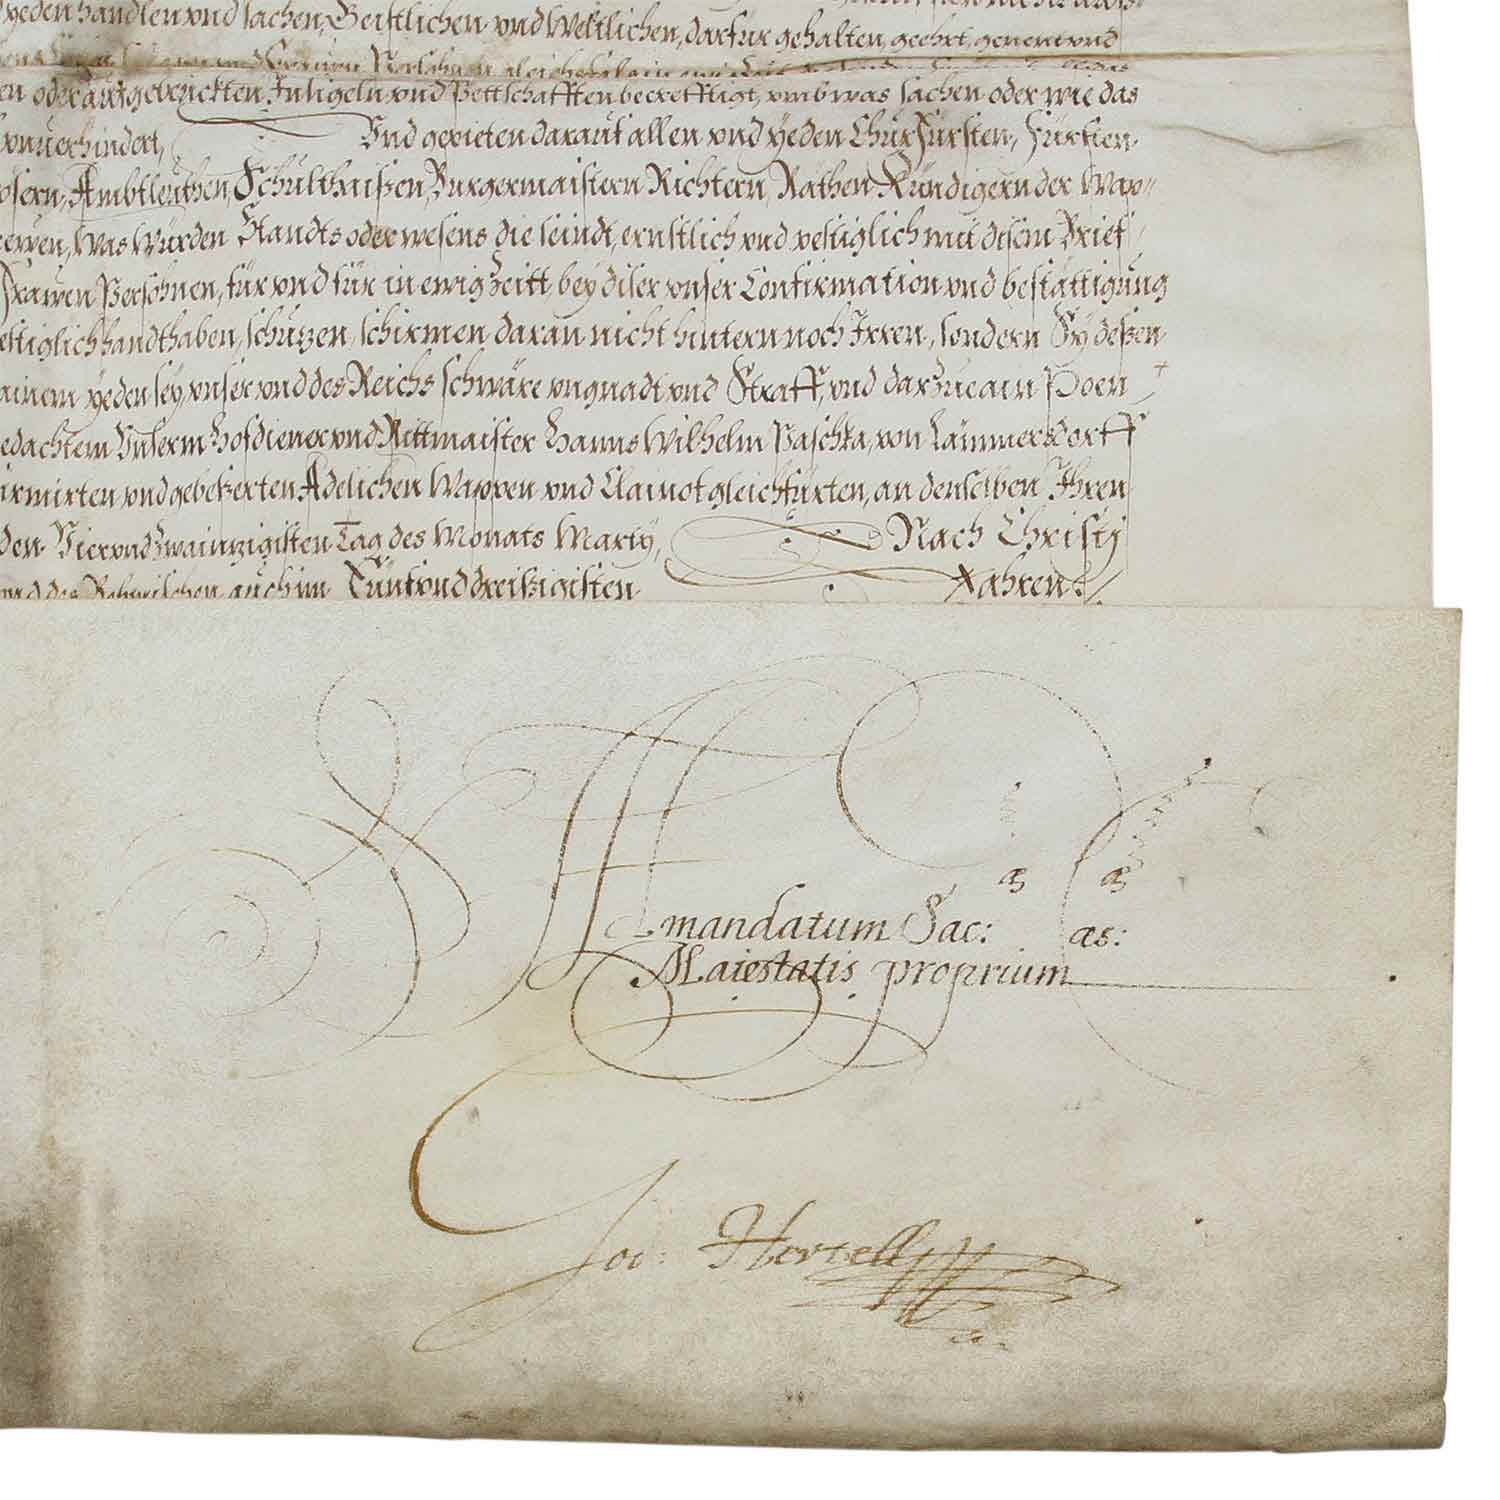 yeden handlen vnd sachen, Geistlichen vnd Weltlichen, darfür gehalten, geehrt, genent vnd
en oder aufgetruckten Insigeln vnd Pettschafften becrefftigt, vmb was sachen oder wie das
vnuerhindert, Vnd gepieten darauf allen vnd yeden Churfürsten, Fürsten
Ambtleuthen, Schulthaißen, Burgermaistern Richtern, Räthen Kündigern der Wap-
Was Würden Standts oder wesens die seindt, ernstlich vnd vestiglich mit disem Brief
Frawen Persohnen, für vnd für in ewig Zeitt, bey diser vnser Confirmation vnd bestättigung
estiglich handthaben, schüzen, schirmen daran nicht hintern noch Irren, sondern Sy deßen
ainem yeden sey, vnser vnd des Reichs schwäre vngnadt vnd Straff, vnd darzue ain Poen
edachtem Vnserm hofdiener vnd Rittmaister Hanns Wilhelm Paschka, von Lämmersdorff
irmirten vnd gebeßerten Adelichen Wappen vnd Clainot gleichfürten, an denselben Ihren
den Vier vnd Zwainzigisten Tag des Monats Marty, Nach Christj
vnd des Behmischen auch im Fünf vnd dreißigisten Jahren
Ad
mandatum Sac: æ æ æs:
Maiestatis proprium
Joc: Hertell